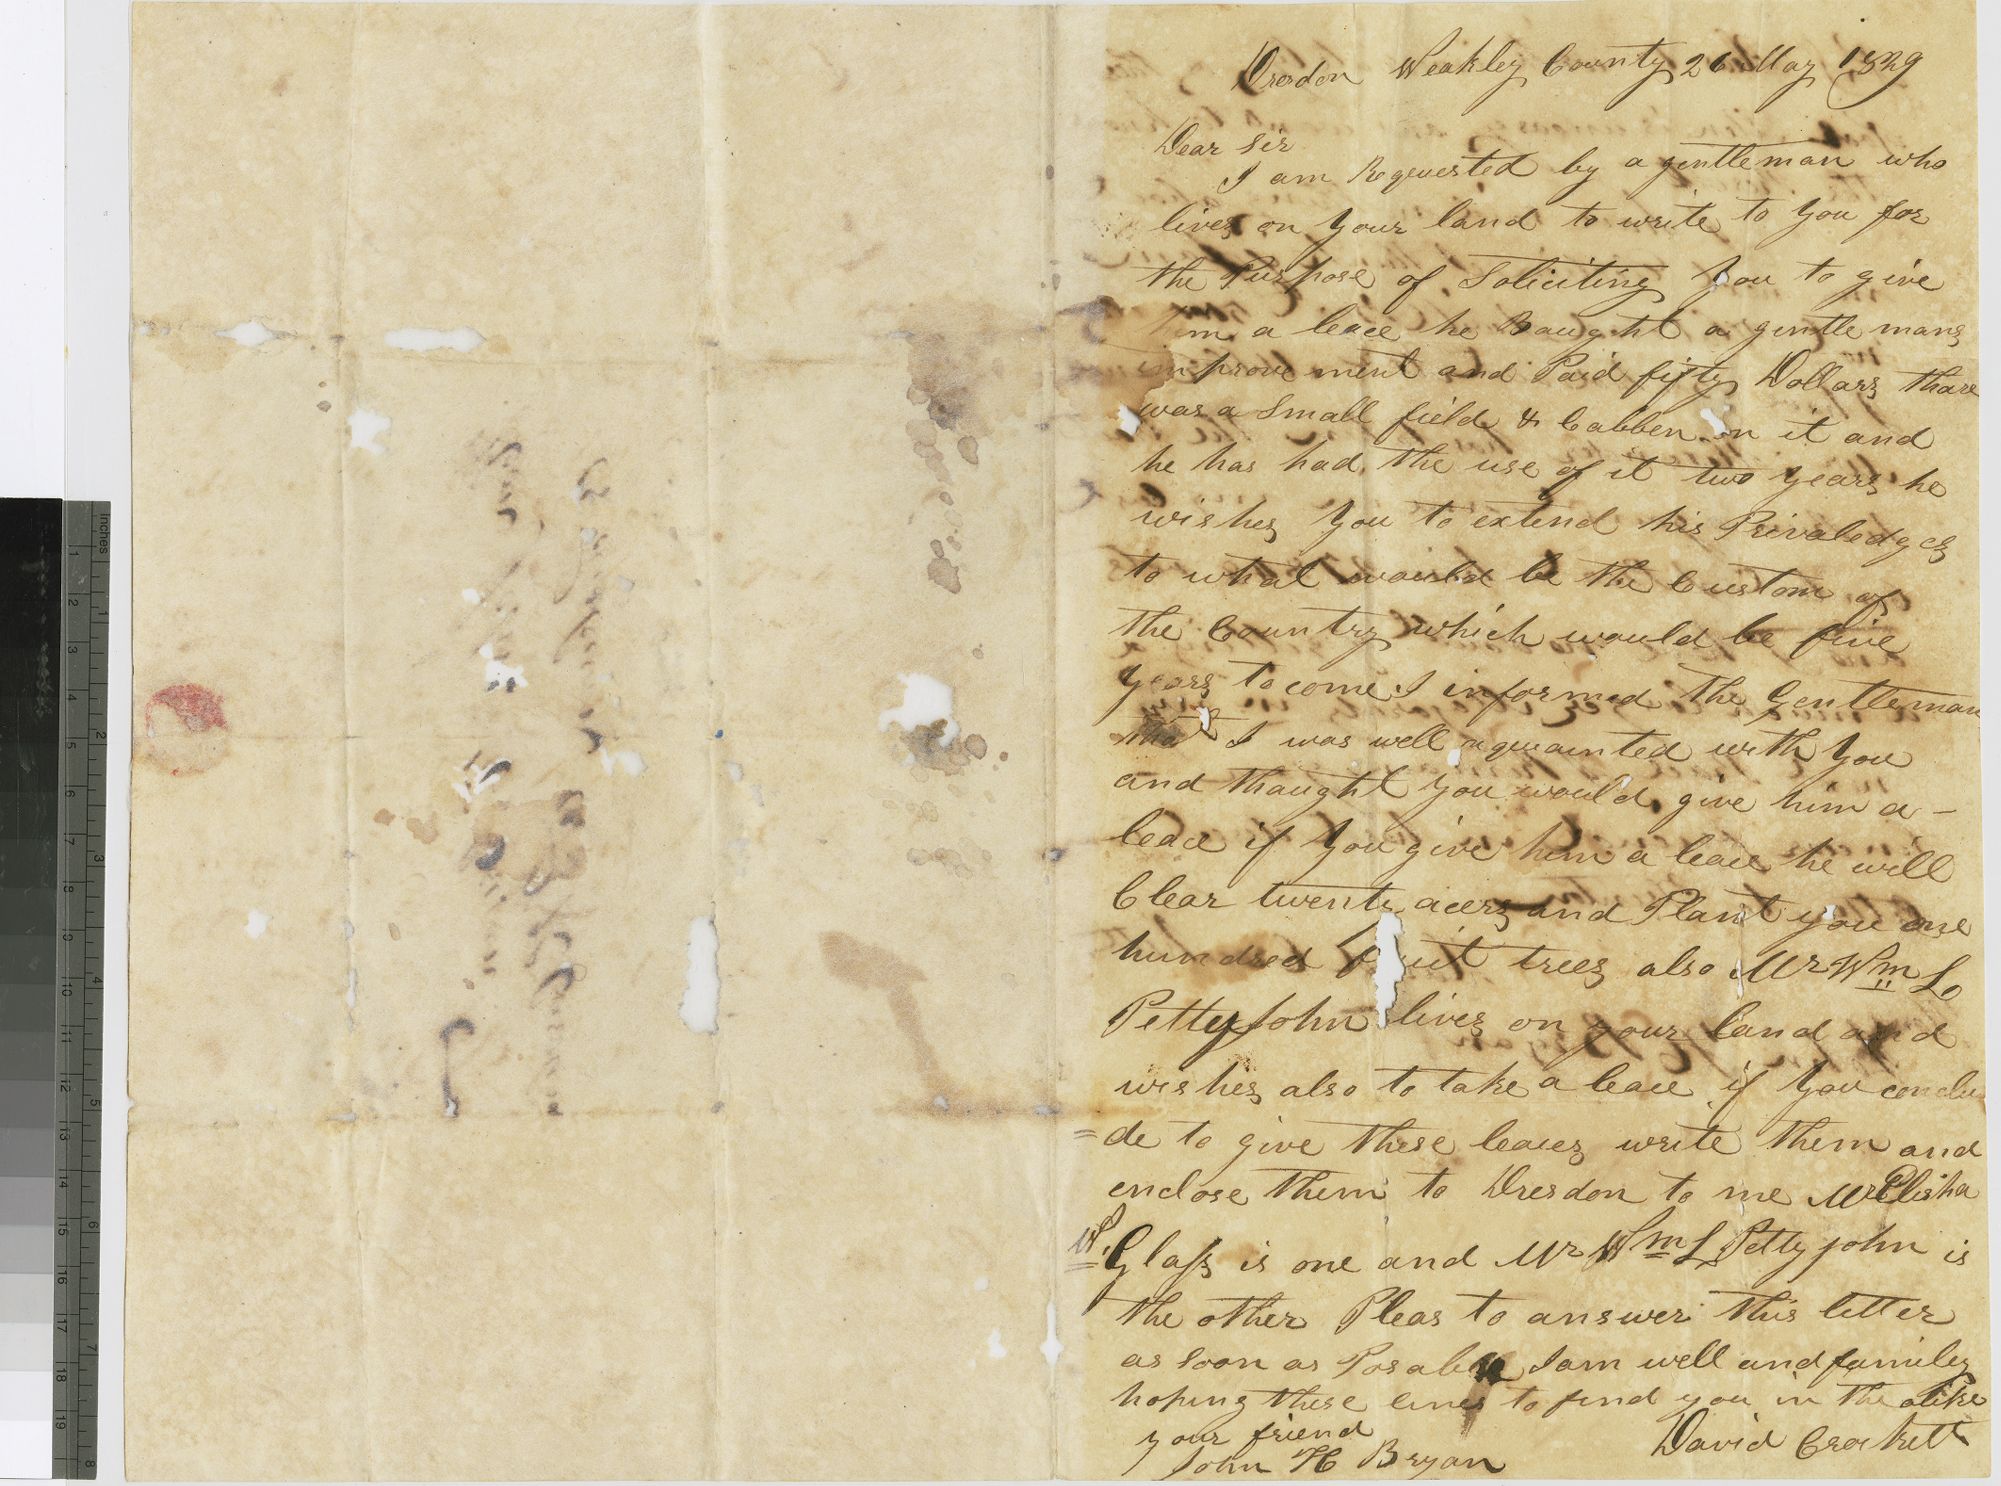 Dresdon Weakley County 26 May 1829
Dear Sir
I am Requested by a gentleman who
lives on your land to write to you for
the Purpose of Soliciting you to give
him a leace he Baught a gentlemans
improvement and Paid fifty Dollars thare
was a Small field & Cabben on it and
he has had the use of it two years he
wishes you to extend his Privaledges
to what would be the Custom of
the Country which would be five
years to come I informed the Gentleman
that I was well aquainted with you
and thaught you would give him a -
leace if you give him a leace he will
Clear twente acers and Plant you one
hundred fruit trees also Mr Wm L
Pettyjohn lives on your land and
wishes also to take a leace if you conclu
= de to give these leaces write them and
enclose them to Dresdon to me Mr Elisha
W. Glass is one and Mr Wm L Pettyjohn is
the other Pleas to answer this letter
as soon as Posable I am well and family
hoping these lines to find you in the alike
your friend
David Crockett
John H Bryan